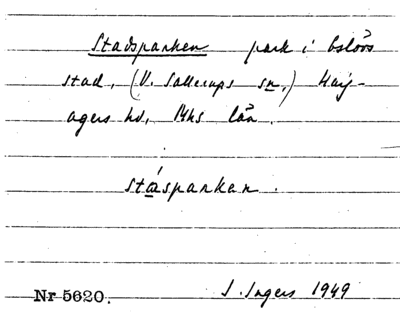 Stadsparken park i Eslövs
stad, (V. Sallerups sn,) Harj-
agers hd, Mhs län.
stásparken.
Nr 5620. I. Ingers 1949